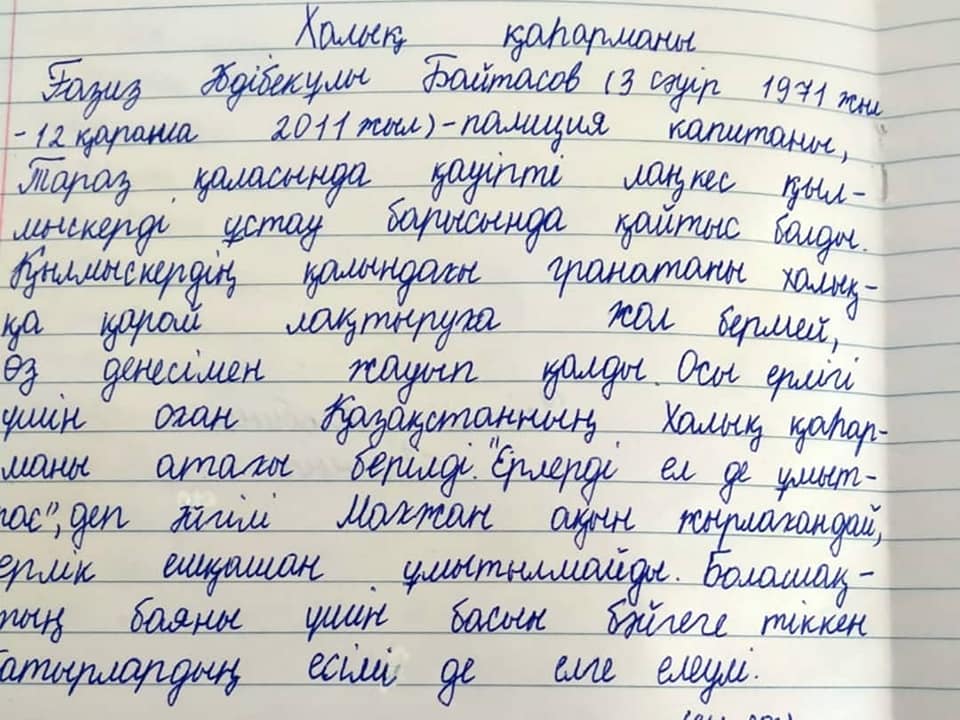 Халық қаһарманы
Ғазиз Әдібекұлы Байтасов (3 сәуір 1971 жыл
- 12 қараша 2011 жыл) - полиция капитаны,
Тараз қаласында қауіпті лаңкес қыл-
мыскерді ұстау барысында қайтыс болды.
Қылмыскердің қолындағы гранатаны халық-
қа қарай лақтыруға жол бермей,
өз денесімен жауып қалды. Осы ерлігі
үшін оған Қазақстанның Халық қаһар-
маны атағы берілді. "Ерлерді ел де ұмыт-
пас", деп әйгілі Мағжан ақын жырлағандай,
ерлік ешқашан ұмытылмайды. Болашақ-
тың баяны үшін басын бәйгеге тіккен
батырлардың есімі де елге елеулі.